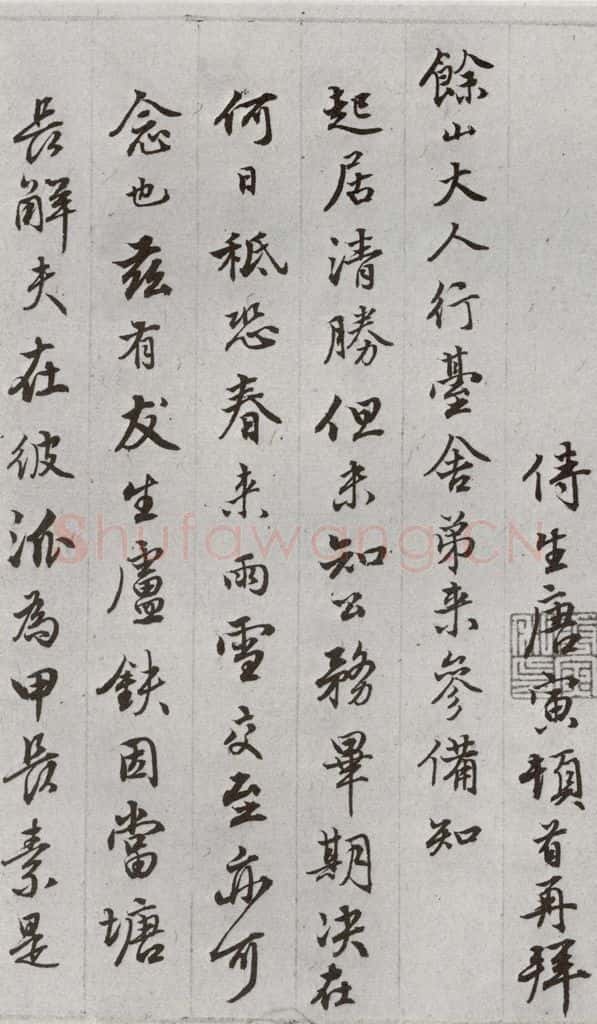 侍生唐寅頓首再拜
餘山大人行臺舍弟来參備知
起居清勝但未知公務畢期决在
何日秪恐春来雨雪交至亦可
念也茲有友生盧鈇因當塘
長解夫在彼派為甲長素是
Shufawang.CN